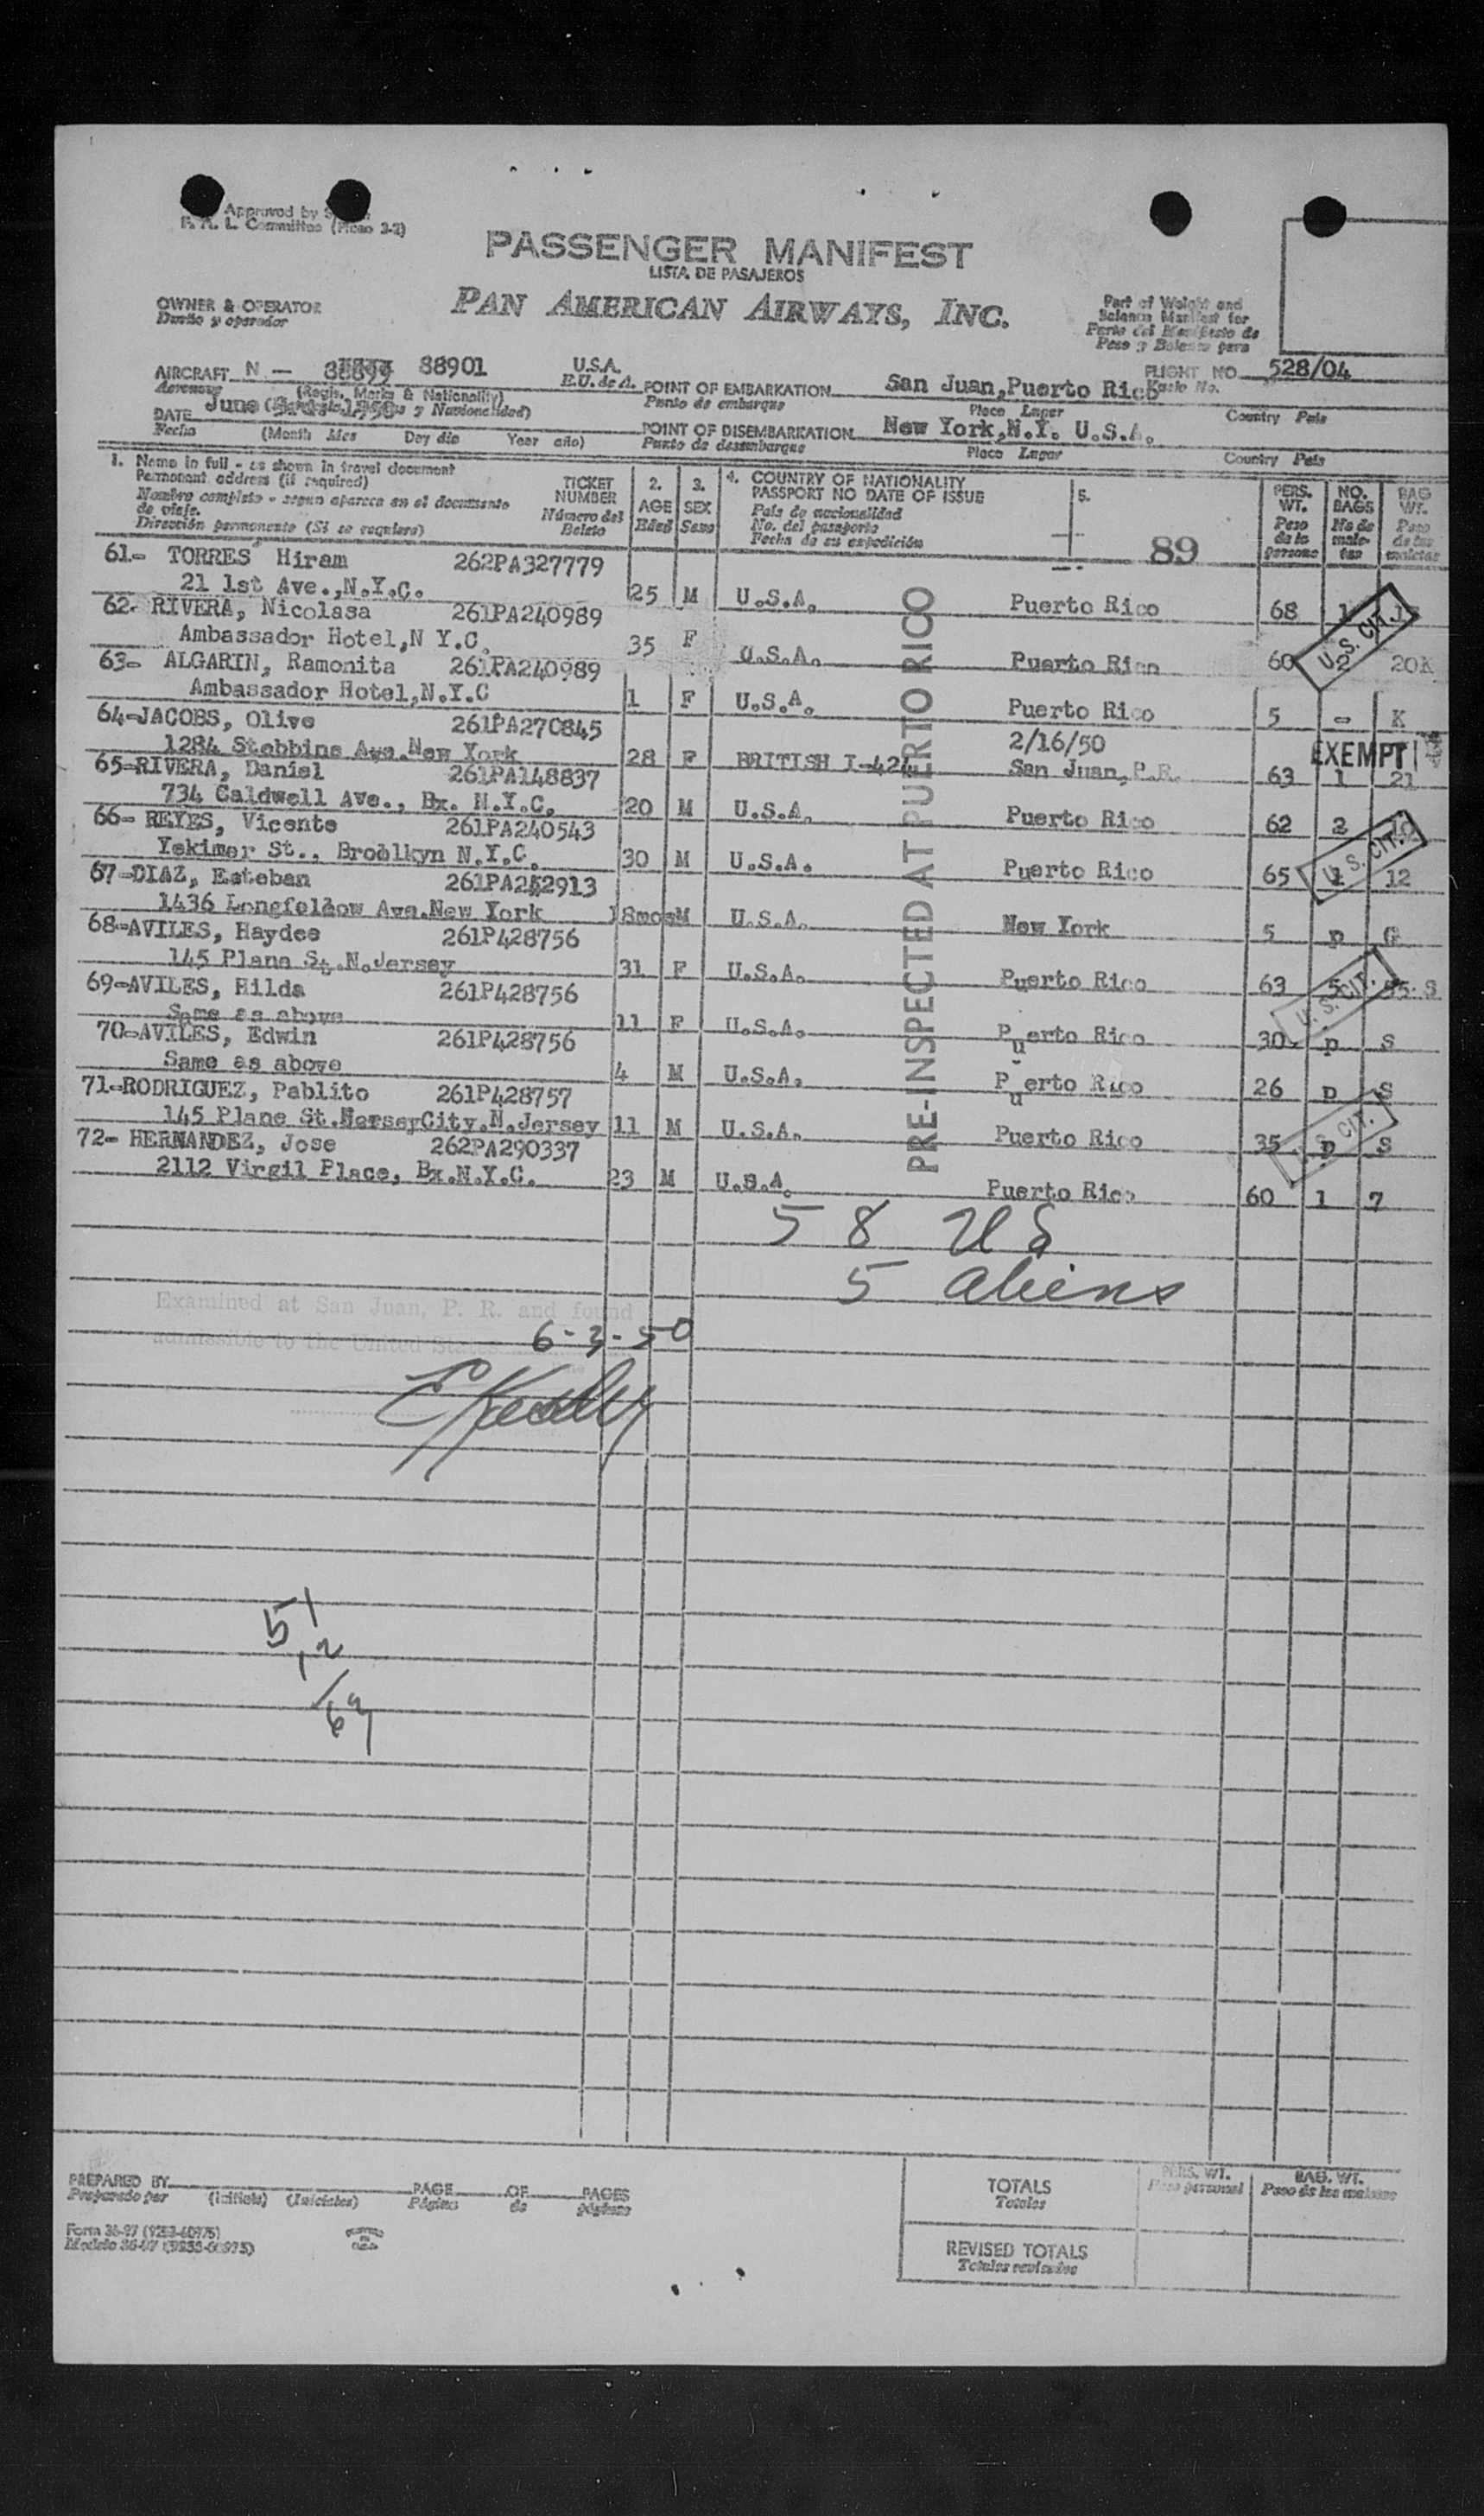 Approved by
F. A. L. Committee (Mexco 3-2)
PASSENGER MANIFEST
LISTA DE PASAJEROS
PAN AMERICAN AIRWAYS, INC.
OWNER & OPERATOR
Dueño y operador
Part of Weight and
Balance Manifest for
Parte del Manifiesto de
Peso y Balance para
AIRCRAFT N - 88901 U.S.A. FLIGHT NO 528/04
Aeronave (Regis. Marks & Nationality) E.U. de A. Vuelo No.
POINT OF EMBARKATION San Juan,Puerto Rico
Punto de embarque Place Lugar Country País
DATE June 1950
Fecha (Month Mes Day día Year año)
POINT OF DISEMBARKATION New York,N.Y. U.S.A.
Punto de desembarque Place Lugar Country País
1. Name in full - as shown in travel document
Permanent address (if required)
Nombre completo - segun aparece en el documento
de viaje.
Dirección permanente (Si se requiere)
TICKET
NUMBER
Número del
Boleto
2.
AGE
Edad
3.
SEX
Sexo
4. COUNTRY OF NATIONALITY
PASSPORT NO DATE OF ISSUE
País de nacionalidad
No. del pasaporte
Fecha de su expedición
5.
89
PERS.
WT.
Peso
de la
persona
NO.
BAGS
No de
male-
tas
BAG
WT.
Peso
de las
maletas
61- TORRES Hiram 262PA327779
21 1st Ave.,N.Y.C. 25 M U.S.A. Puerto Rico 68 1
62- RIVERA, Nicolasa 261PA240989
Ambassador Hotel,N Y.C. 35 F U.S.A. Puerto Rico 60 2 20K
63- ALGARIN, Ramonita 261PA240989
Ambassador Hotel,N.Y.C 1 F U.S.A. Puerto Rico 5 - K
64-JACOBS, Olive 261PA270845 2/16/50
1284 Stebbins Ave.New York 28 F BRITISH I-424 San Juan,P.R. 63 1 21
65-RIVERA, Daniel 261PA148837
734 Caldwell Ave., Bx. N.Y.C. 20 M U.S.A. Puerto Rico 62 2
66- REYES, Vicente 261PA240543
Yekimer St., Broolkyn N.Y.C. 30 M U.S.A. Puerto Rico 65 1 12
67-DIAZ, Esteban 261PA252913
1436 Longfellow Ave.New York 18mos M U.S.A. New York 5 p G
68-AVILES, Haydee 261P428756
145 Plane St.N.Jersey 31 F U.S.A. Puerto Rico 63 5 55 S
69-AVILES, Hilda 261P428756
Same as above 11 F U.S.A. Puerto Rico 30 p S
70-AVILES, Edwin 261P428756
Same as above 4 M U.S.A. Puerto Rico 26 p S
71-RODRIGUEZ, Pablito 261P428757
145 Plane St.NerseyCity.N.Jersey 11 M U.S.A. Puerto Rico 35 p S
72- HERNANDEZ, Jose 262PA290337
2112 Virgil Place, Bx.N.Y.C. 23 M U.S.A. Puerto Rico 60 1 7
PRE-INSPECTED AT PUERTO RICO
U.S. CIT.
EXEMPT
U.S. CIT.
U.S. CIT.
U.S. CIT.
58 US
5 aliens
Examined at San Juan, P. R. and found
admissible to the United States
6-3-50
51
12
PREPARED BY PAGE OF PAGES
Preparado por (Initials) (Iniciales) Página de páginas
Form 36-97 (9233-60975)
Modelo 36-97 (9233-60975)
TOTALS
Totales
PERS. WT.
Peso personal
BAG. WT.
Peso de las maletas
REVISED TOTALS
Totales revisados